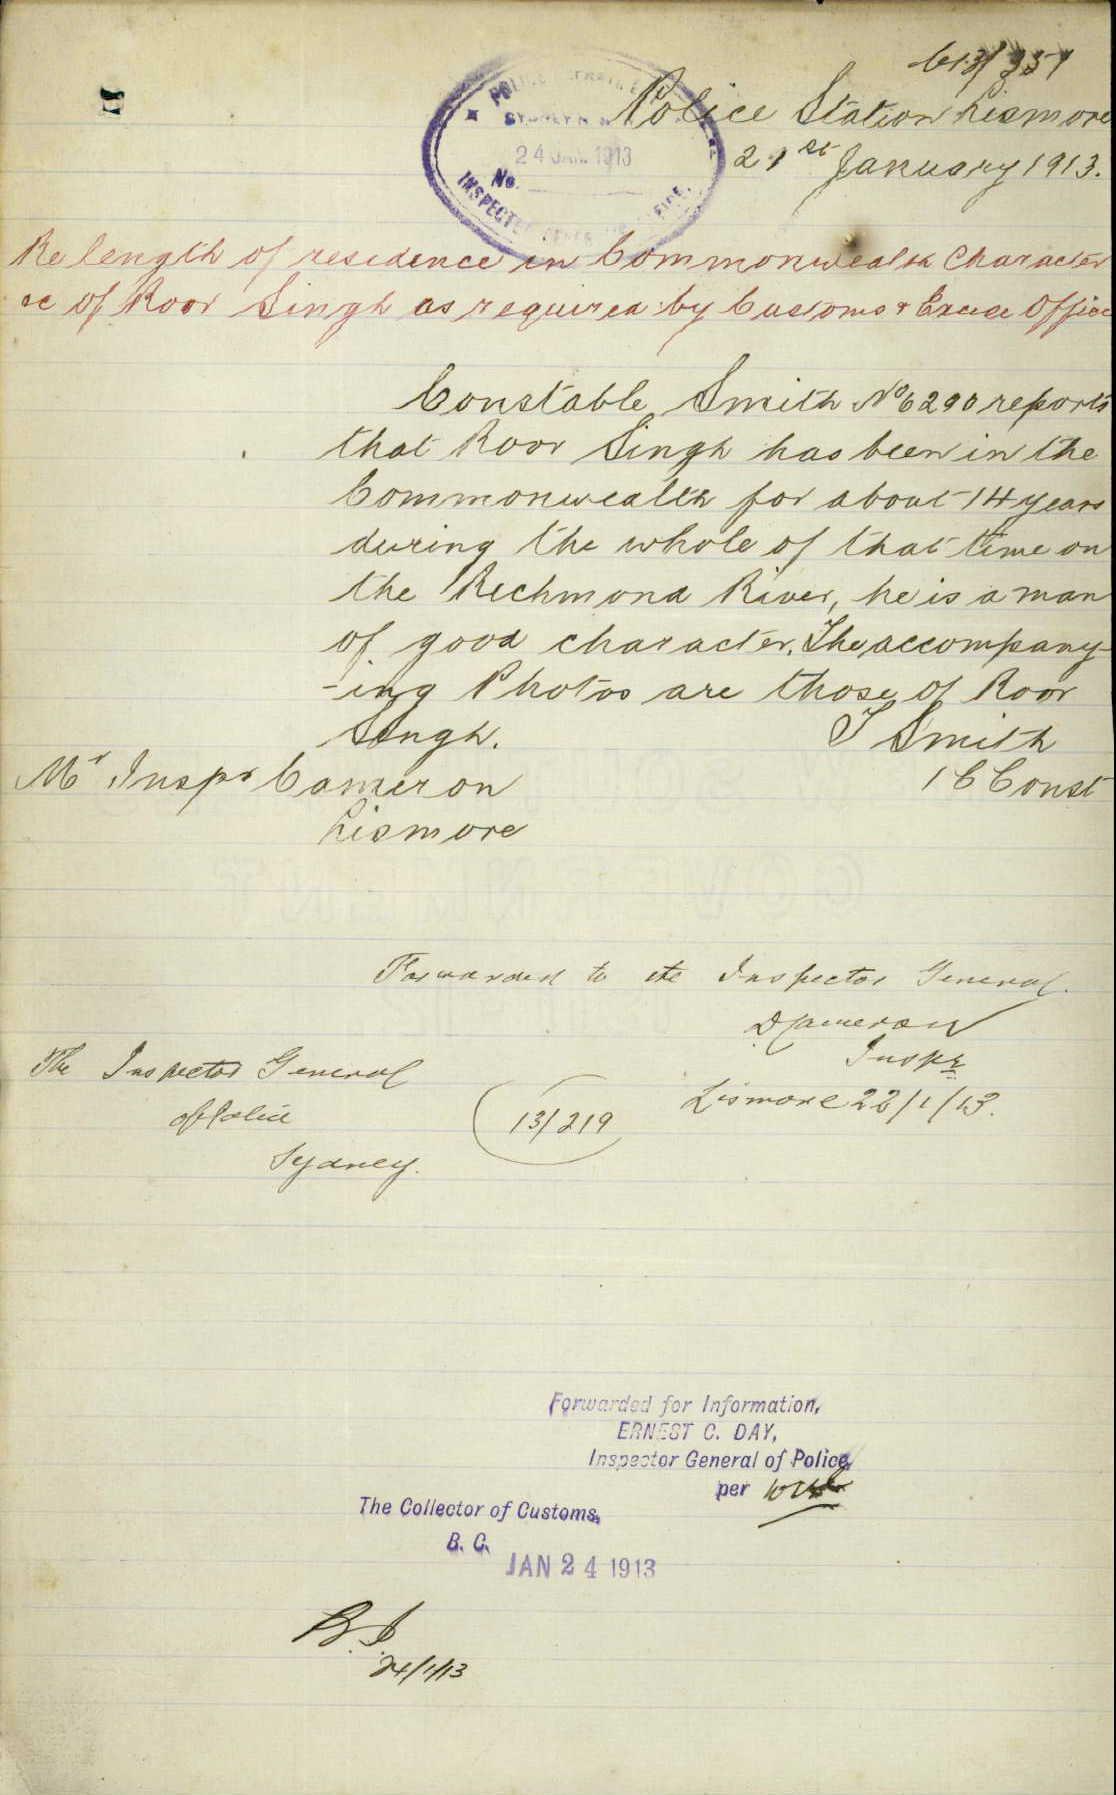 Police Station Lismore
21st January 1913.
24 JAN. 1913
No.
Re length of residence in Commonwealth Character
&c of Roor Singh as required by Customs & Excise Office
Constable Smith No 6290 reports
that Roor Singh has been in the
Commonwealth for about 14 years
during the whole of that time on
the Richmond River, he is a man
of good character. The accompany-
-ing Photos are those of Roor
Singh.
T Smith
1 C Const
Mr Inspr Cameron
Lismore
Forwarded to the Inspector General.
D Cameron
Inspr
Lismore 22/1/13.
The Inspector General
of Police
Sydney.
13/219
Forwarded for Information,
ERNEST C. DAY,
Inspector General of Police
per
The Collector of Customs,
B. C.
JAN 24 1913
24/1/13